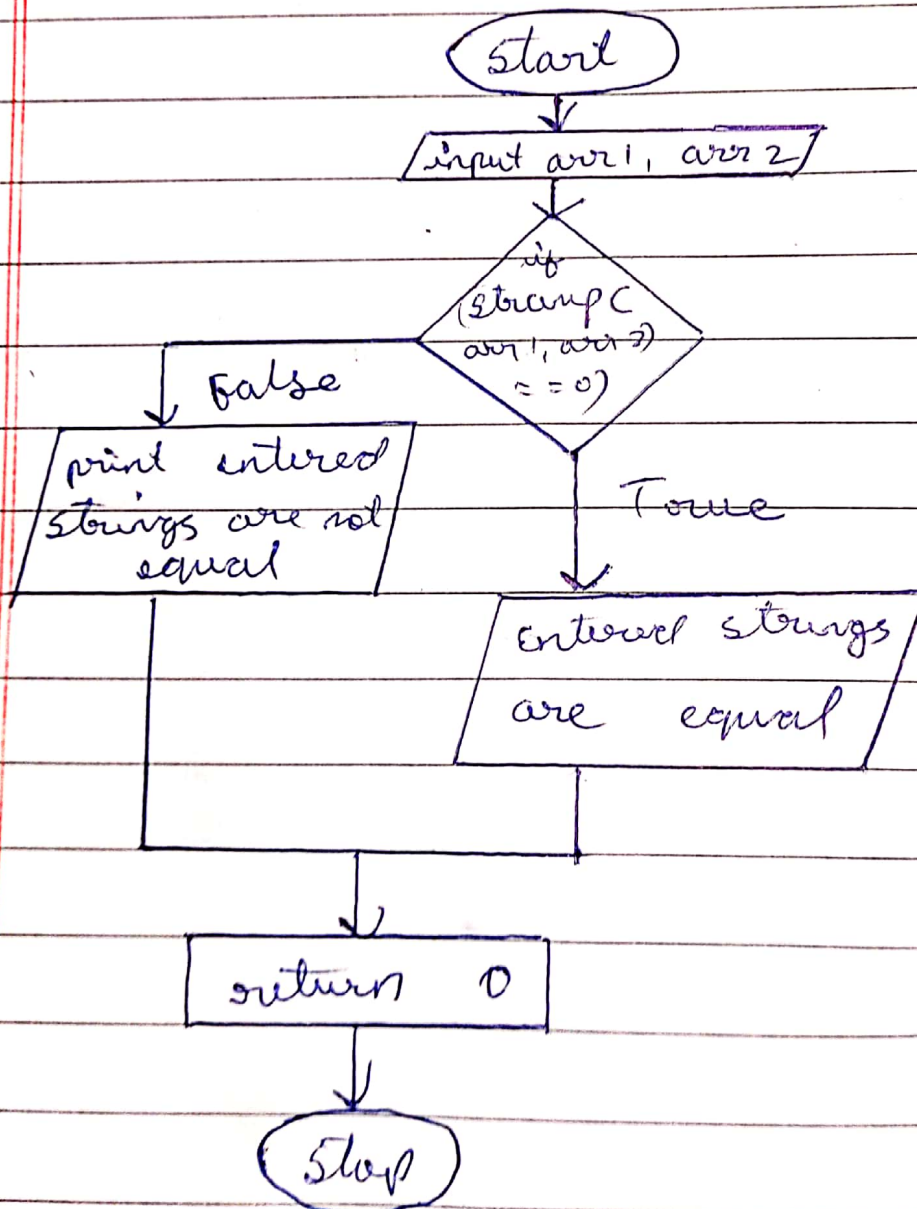 Start
input arr1, arr2
if
(strcmp(
arr1, arr2)
== 0)
False
print entered
strings are not
equal
True
Entered strings
are equal
return 0
Stop